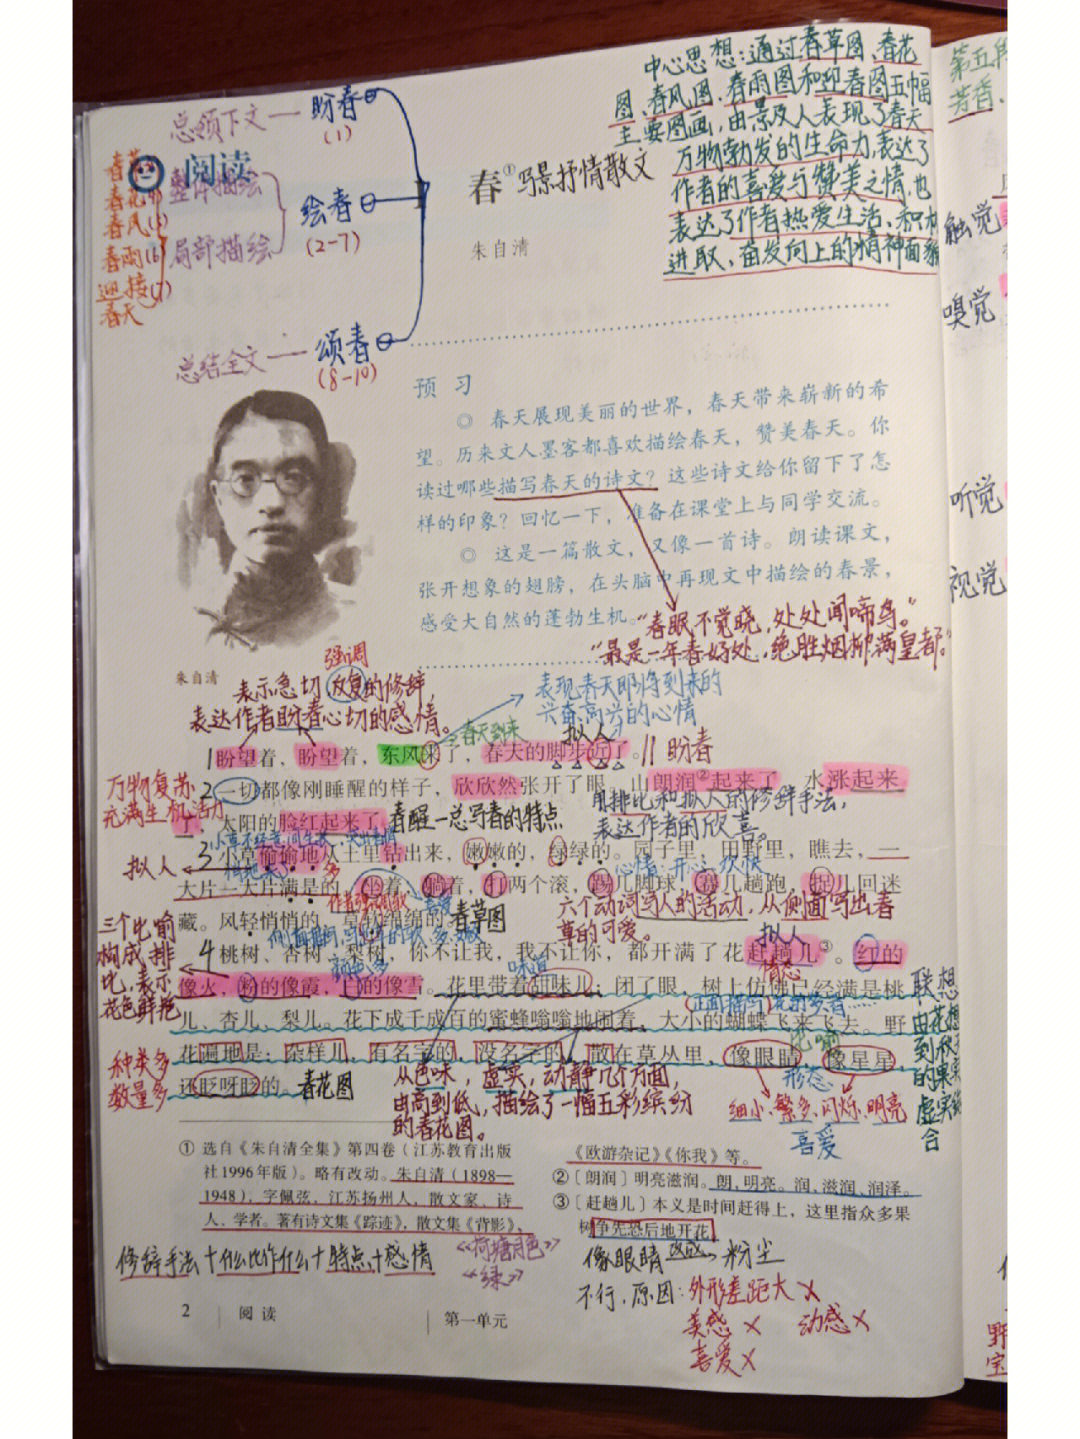 中心思想：通过春草图、春花
图、春风图、春雨图和迎春图五幅
主要图画，由景及人表现了春天
万物勃发的生命力，表达了
作者的喜爱与赞美之情，也
表达了作者热爱生活、积极
进取，奋发向上的精神面貌
总领下文 — 盼春
(1)
阅读
整体描绘
局部描绘
绘春
(2-7)
春雨(6)
迎接(7)
春天
总结全文 — 颂春
(8-10)
春① 写景抒情散文
朱自清
预 习
◎ 春天展现美丽的世界，春天带来崭新的希
望。历来文人墨客都喜欢描绘春天，赞美春天。你
读过哪些描写春天的诗文？这些诗文给你留下了怎
样的印象？回忆一下，准备在课堂上与同学交流。
◎ 这是一篇散文，又像一首诗。朗读课文，
张开想象的翅膀，在头脑中再现文中描绘的春景，
感受大自然的蓬勃生机。
“春眠不觉晓，处处闻啼鸟。”
“最是一年春好处，绝胜烟柳满皇都。”
朱自清
强调
表示急切 反复的修辞，
表达作者盼春心切的感情。
表现春天即将到来的
兴奋高兴的心情
春天到来
拟人
1 盼望着，盼望着，东风来了，春天的脚步近了。 || 盼春
万物复苏
充满生机活力
2 一切都像刚睡醒的样子，欣欣然张开了眼。山朗润②起来了，水涨起来
了，太阳的脸红起来了。
春醒—总写春的特点
用排比和拟人的修辞手法，
表达作者的欣喜。
拟人
3 小草偷偷地从土里钻出来，嫩嫩的，绿绿的。园子里，田野里，瞧去，一
大片一大片满是的。坐着，躺着，打两个滚，踢几脚球，赛几趟跑，捉几回迷
藏。风轻悄悄的，草软绵绵的。春草图
心情：开心、欢快
六个动词写人的活动，从侧面写出春
草的可爱。
三个比喻
构成排
比，表示
花色鲜艳
拟人
4 桃树、杏树、梨树，你不让我，我不让你，都开满了花赶趟儿③。红的
像火，粉的像霞，白的像雪。花里带着甜味儿；闭了眼，树上仿佛已经满是桃
儿、杏儿、梨儿。花下成千成百的蜜蜂嗡嗡地闹着，大小的蝴蝶飞来飞去。野
花遍地是：杂样儿，有名字的，没名字的，散在草丛里，像眼睛，像星星，
还眨呀眨的。春花图
味道
比喻
种类多
数量多
从色味，虚实，动静几个方面，
由高到低，描绘了一幅五彩缤纷
的春花图。
形态
细小、繁多、闪烁、明亮
喜爱
联想
由花想
① 选自《朱自清全集》第四卷（江苏教育出版
社1996年版）。略有改动。朱自清（1898—
1948），字佩弦，江苏扬州人，散文家、诗
人、学者。著有诗文集《踪迹》，散文集《背影》、
《欧游杂记》《你我》等。
《荷塘月色》
《绿》
② 〔朗润〕明亮滋润。朗，明亮。润，滋润、润泽。
③ 〔赶趟儿〕本义是时间赶得上，这里指众多果
树争先恐后地开花。
修辞手法＋什么比作什么＋特点＋感情
像眼睛 改成 粉尘
不行，原因：外形差距大×
美感× 动感×
喜爱×
2 阅读 第一单元
触觉
嗅觉
听觉
视觉